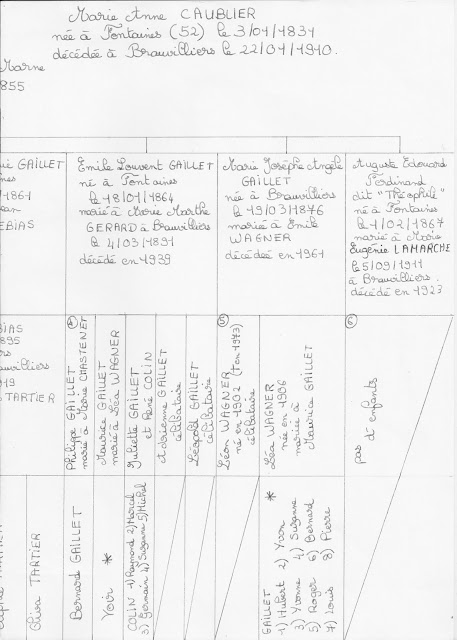 Marie Anne CAUBLIER
née à Fontaines (52) le 3/01/1831
décédée à Brauvilliers le 22/01/1910.
Marne
855
GAILLET
1861
EBIAS
Emile Louvent GAILLET
né à Fontaines
le 18/01/1864
marié à Marie Marthe
GERARD à Brauvilliers
le 4/03/1891
décédé en 1939
Marie Josèphe Angèle
GAILLET
née à Brauvilliers
le 19/03/1876
mariée à Emile
WAGNER
décédée en 1961
Auguste Edouard
Ferdinand
dit "Théophile"
né à Fontaines
le 1/02/1867
marié à Marie
Eugénie LAMARCHE
le 5/09/1911
à Brauvilliers.
décédé en 1923
BIAS
895
villiers
919
TARTIER
④
Philippe GAILLET
marié à Marie CHASTENET
Maurice GAILLET
marié à Léa WAGNER
Juliette GAILLET
et René COLIN
Adrienne GAILLET
célibataire
Léopold GAILLET
célibataire
⑤
Léon WAGNER
né en 1902 († en 1973)
célibataire
Léa WAGNER
née en 1906
mariée à
Maurice GAILLET
⑥
pas d'enfants
TARTIER
Bernard GAILLET
Voir *
COLIN 1) Raymond 2) Marcel
3) Germain 4) Suzanne 5) Michel
GAILLET *
1) Hubert 2) Yvon
3) Yvonne 4) Suzanne
5) Roger 6) Bernard
7) Louis 8) Pierre